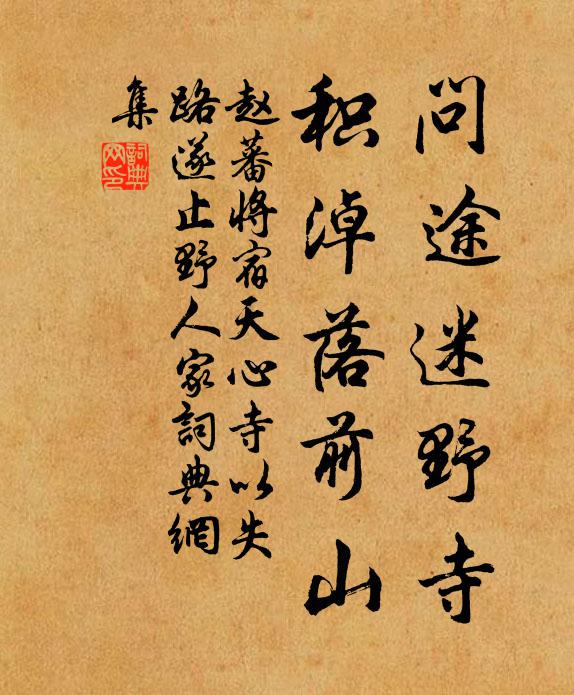 问途迷野寺
积淖落前山
赵蕃将宿天心寺以失
路遂止野人家詞典網
集
詞典
网印